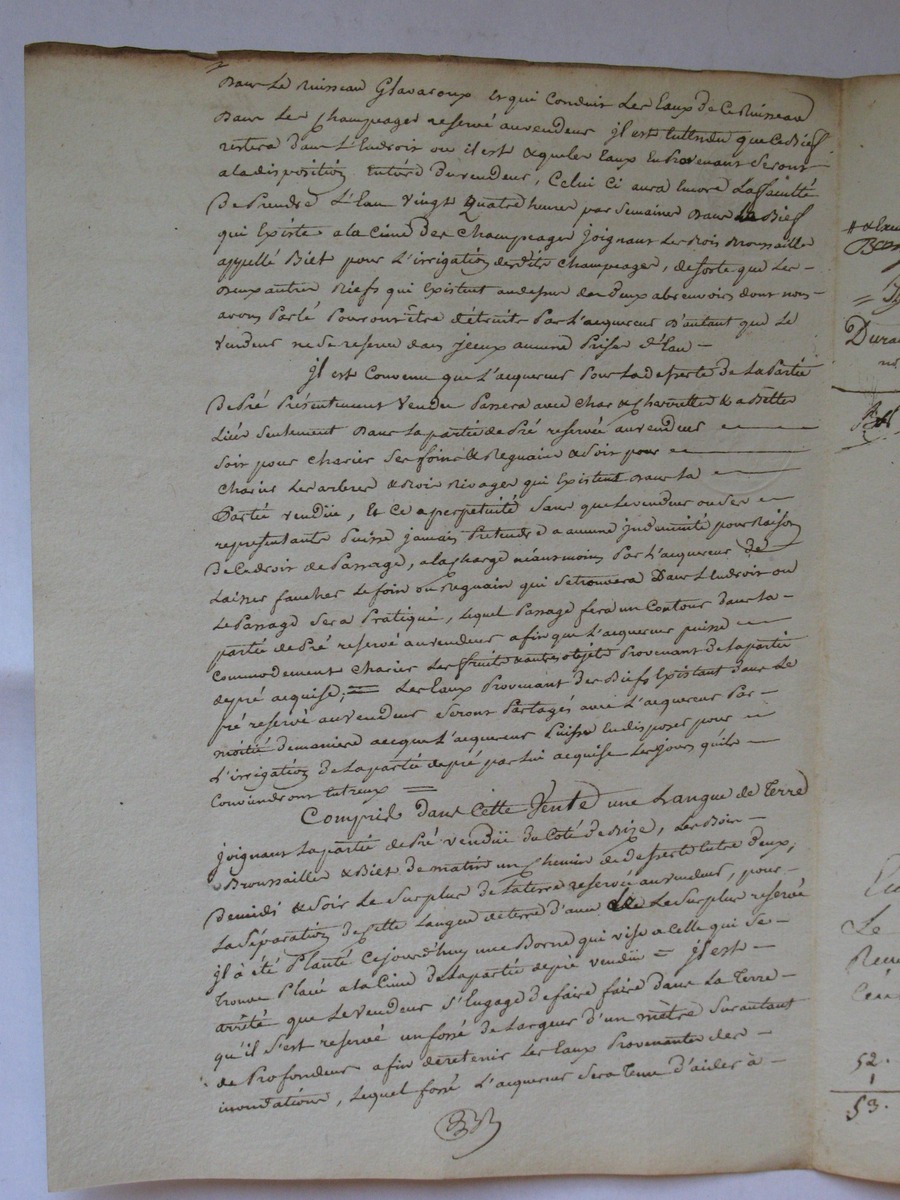 Dans Le Ruisseau Glavaroux et qui Conduit Les Eaux de Ce Ruisseau
Dans Les Champeages reservé au vendeur il est Entendu que Ce Bief
restera dans L'Endroit ou il est & que les Eaux En Provenant Seront
a la disposition Entiere Du vendeur, Celui Ci aura Encore La faculté
De Prendre L'Eau Vingt Quatre heures par Semaine Dans Le Bief
qui Existe a la Cime Des Champeages joignant Les Bois Broussailles
appellé Biet pour L'irrigation desdits Champeages, de sorte que Les
Deux autres Biefs qui Existent au dessus des deux abreuvoirs dont nous
avons Parlé Pourront être détruits Par L'acquereur D'autant que Le
Vendeur ne Se reserve dans jceux aucune Prise d'Eau
jl est Convenu que L'acquereur Pour La desserte de La Partie
De Pré Présentement Vendue Passera avec Char & Charrettes & a Bettes
Liées Seulement Dans La partie de Pré reservée au vendeur
Soit pour Charier Ses foins & Reguain & Soit pour
Charier Les arbres & Bois Rivages qui Existent Dans La
Partie vendüe, Et Ce a perpetuité Sans que Le vendeur ou Ses
representants Puisse jamais Pretendre a aucune jndemnité pour Raison
De Ce droit de Passage, a la charge néantmoins Par L'acquereur de
Laisser faucher Le foin ou Reguain qui Se trouvera Dans L'Endroit ou
Le Passage Sera Pratiqué, Lequel Passage fera un Contour dans La
partie de Pré reservé au vendeur afin que L'acquereur puisse
Commodement Charier Les fruits & autres objets Provenant de La partie
de pré acquise; Les Eaux Provenant Des Biefs Existant dans Le
Pré reservé au Vendeur Seront Partagés avec L'acquereur Par
moitié de maniere a ce que L'acquereur Puisse En disposer pour
L'irrigation de La partie de pré par Lui acquise Les jours qu'ils
Conviendront Entreux
Compris dans Cette Vente une Langue de Terre
joignant La partie de Pré vendüe du Coté de Bize, Les Bois
Broussailles & Biet de matin un Chemin de desserte Entre deux,
De midi & Soir Le Surplus de La terre reservée au vendeur, pour
La Séparation de cette Langue de terre d'avec Le Surplus reservé
jl à été Planté Cejourd'huy une Borne qui vise a Celle qui Se
Trouve Placée a la Cime de La partie de pré vendüe = jl est
arrêté que Le Vendeur S'Engage de faire faire dans La Terre
qu'il S'est reservé un fossé de Largeur d'un mètre Sur autant
de Profondeur afin de retenir Les Eaux Provenantes des
inondations, Lequel fossé L'acquereur Sera Tenu d'aider à
Dura
Le
52.
1
53.